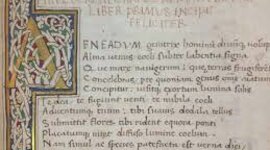 LIBER PRIMVS INCIPIT
FELICITER
AENEADVM genitrix hominū diuūq; uolup
Alma uenus coeli subter labentia signa
Quę mare nauigerum: quę terras frugifere
Concelebras: per quoniam genus omne
Concipitur: uisitq; exortum lumina solis
Te dea: te fugiunt uenti: te nubila coeli
Aduentumq; tuum: tibi suauis dedala tellus
Submittit flores: tibi rident equora ponti
Placatumq; nitet diffuso lumine coelum
Nam simul ac species patefacta est uerna diei